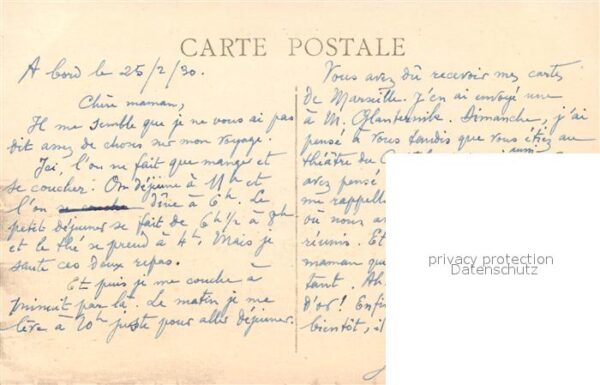 CARTE POSTALE
A bord le 25/2/30.
Chère maman,
Il me semble que je ne vous ai pas
dit assez de choses sur mon voyage.
Ici, l'on ne fait que manger et
se coucher. On déjeune à 11h et
l'on se couche dîne à 6h. Le
petit déjeuner se fait de 6h 1/2 à 9h
et le thé se prend à 4h. Mais je
saute ces deux repas.
Et puis je me couche à
minuit par là. Le matin je me
lève à 10h juste pour aller déjeuner.
Vous avez dû recevoir mes cartes
de Marseille. J'en ai envoyé une
à M. Dimanche, j'ai
pensé à vous tandis que vous étiez au
théâtre du
avez pensé
me rappelle
où nous a
réunis. Et
maman qu
tant. Ah.
d'or! Enfin
bientôt, i
privacy protection
Datenschutz